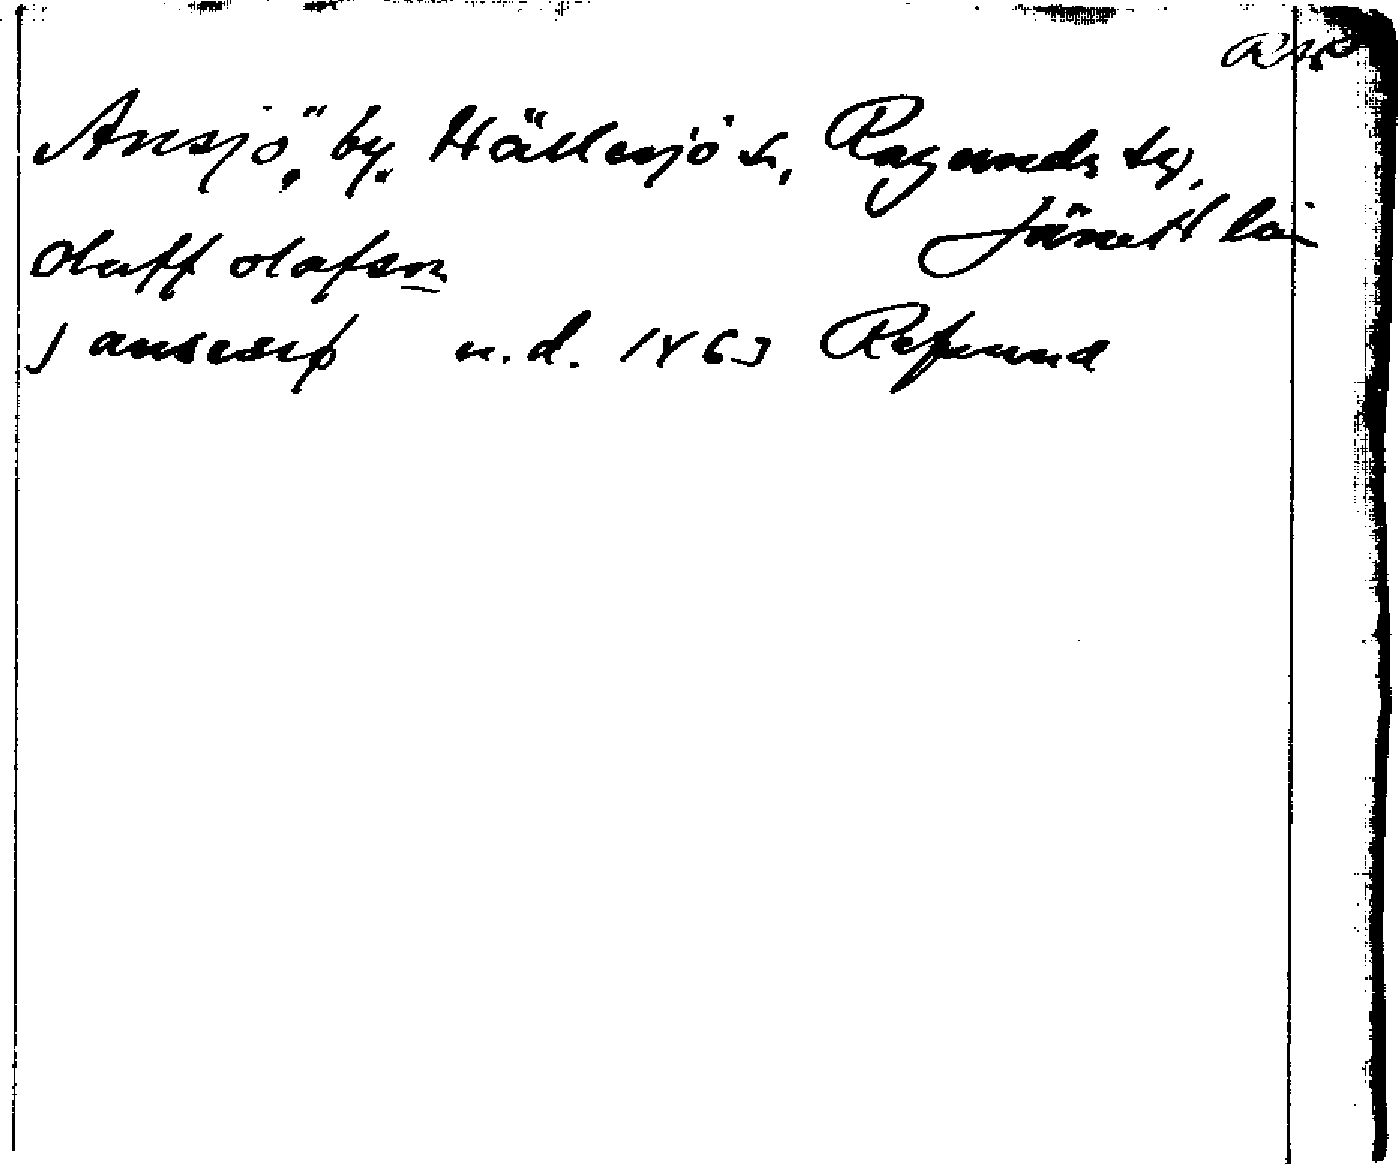 Ansjö, by. Hällesjö s., Ragunds tg.
Jämtl län
Oluff olafson
J ansesiø n.d. 1863 Refsund